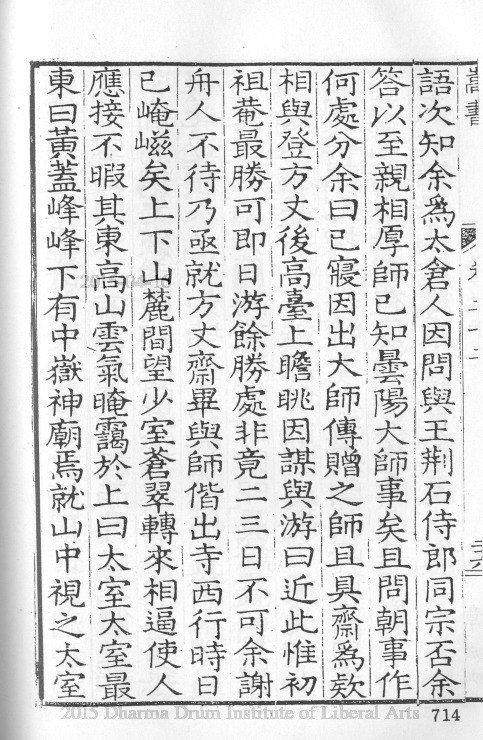 嵩書
語次知余爲太倉人因問與王荆石侍郎同宗否余
答以至親相厚師已知曇陽大師事矣且問朝事作
何處分余曰已寢因出大師傳贈之師且具齋爲欵
相與登方丈後高臺上瞻眺因謀與游曰近此惟初
祖菴最勝可即日游餘勝處非竟二三日不可余謝
舟人不待乃亟就方丈齋畢與師偕出寺西行時日
已崦嵫矣上下山麓間望少室蒼翠轉來相逼使人
應接不暇其東高山雲氣晻靄於上曰太室太室最
東曰黃蓋峰峰下有中嶽神廟焉就山中視之太室
2015 Dharma Drum Institute of Liberal Arts
714